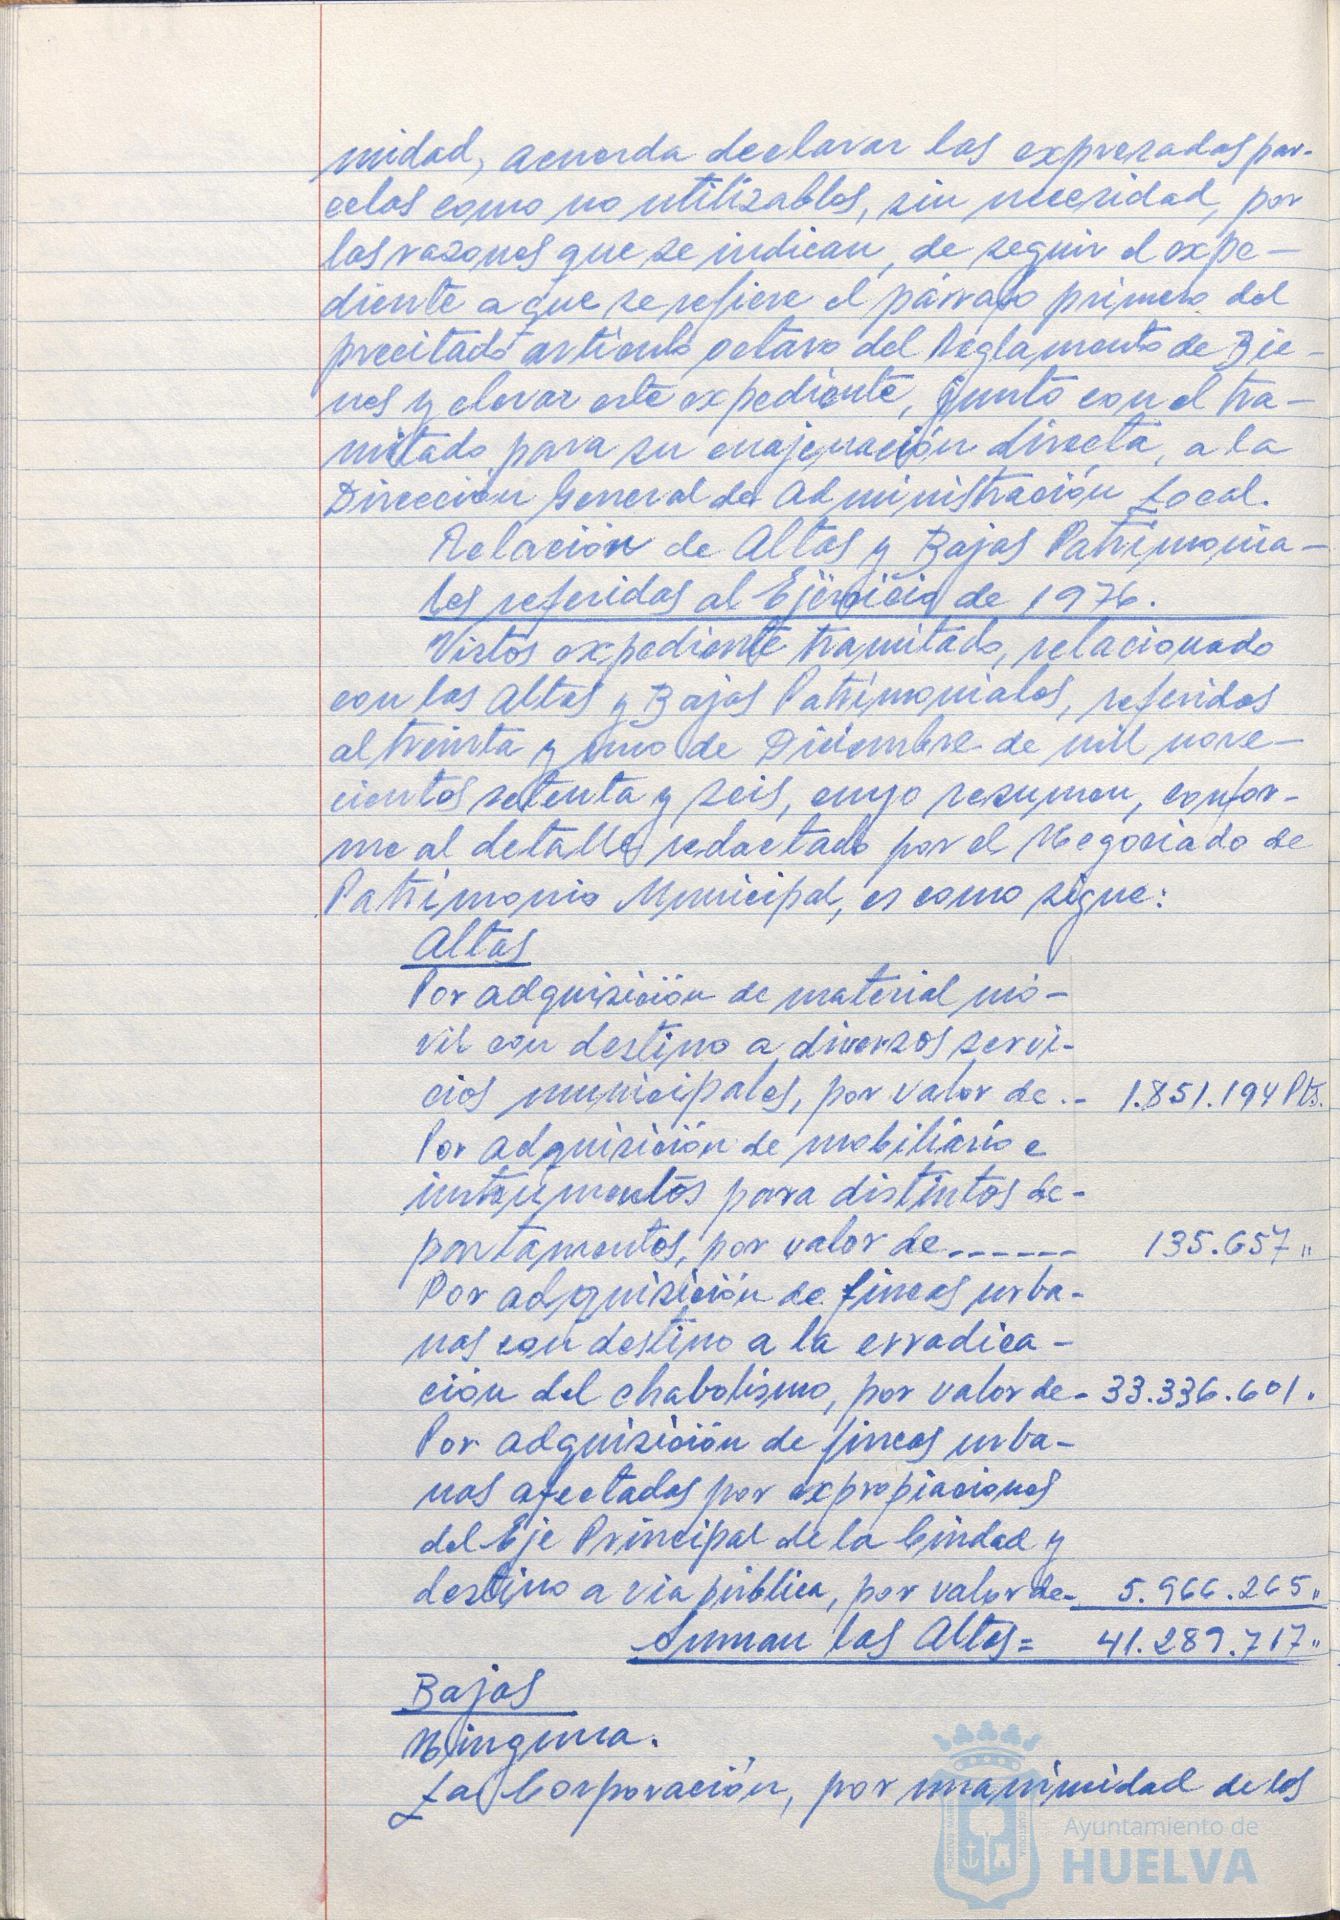 midad, acuerda declarar las expresadas par-
celas como no utilizables, sin necesidad, por
las razones que se indican, de seguir el expe-
diente a que se refiere el párrafo primero del
precitado artículo octavo del Reglamento de Bie-
nes y elevar este expediente, junto con el tra-
mitado para su enajenación directa, a la
Dirección General de Administración Local.
Relación de Altas y Bajas Patrimonia-
les referidas al Ejercicio de 1976.
Vistos expediente tramitado, relacionado
con las Altas y Bajas Patrimoniales, referidas
al treinta y uno de Diciembre de mil nove-
cientos setenta y seis, cuyo resumen, confor-
me al detalle redactado por el Negociado de
Patrimonio Municipal, es como sigue:
Altas
Por adquisición de material mó-
vil con destino a diversos servi-
cios municipales, por valor de.- 1.851.194 Pts.
Por adquisición de mobiliario e
instrumentos para distintos de-
partamentos, por valor de ------ 135.657 "
Por adquisición de fincas urba-
nas con destino a la erradica-
ción del chabolismo, por valor de- 33.336.601.
Por adquisición de fincas urba-
nas afectadas por expropiaciones
del Eje Principal de la Ciudad y
destino a vía pública, por valor de- 5.966.265 "
Suman las Altas= 41.289.717 "
Bajas
Ninguna.
La Corporación, por unanimidad de los
Ayuntamiento de
HUELVA